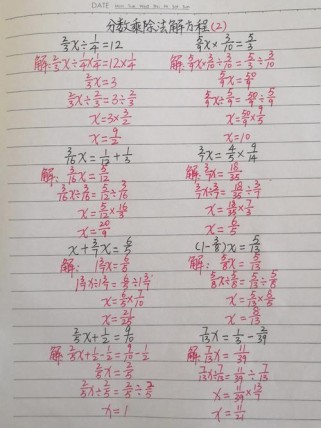 DATE
分数乘除法解方程(2)
2/3x÷1/4=12
解: 2/3x÷1/4×1/4=12×1/4
2/3x=3
2/3x÷2/3=3÷2/3
x=3×3/2
x=9/2
5/9x×3/10=5/3
解: 5/9x×3/10÷3/10=5/3÷3/10
5/9x=50/9
5/9x÷5/9=50/9÷5/9
x=50/9×9/5
x=10
3/16x=1/12+1/3
解: 3/16x=5/12
3/16x÷3/16=5/12÷3/16
x=5/12×16/3
x=20/9
3/7x=4/5×9/14
解: 3/7x=18/35
3/7x÷3/7=18/35÷3/7
x=18/35×7/3
x=6/5
x+3/7x=6/5
解: 1 3/7x=6/5
1 3/7x÷1 3/7=6/5÷1 3/7
x=6/5×7/10
x=21/25
(1-3/8)x=5/13
解: 5/8x=5/13
5/8x÷5/8=5/13÷5/8
x=5/13×8/5
x=8/13
2/5x+1/2=9/10
解: 2/5x+1/2-1/2=9/10-1/2
2/5x=2/5
2/5x÷2/5=2/5÷2/5
x=1
7/13x=1/3-2/39
解: 7/13x=11/39
7/13x÷7/13=11/39÷7/13
x=11/39×13/7
x=11/21